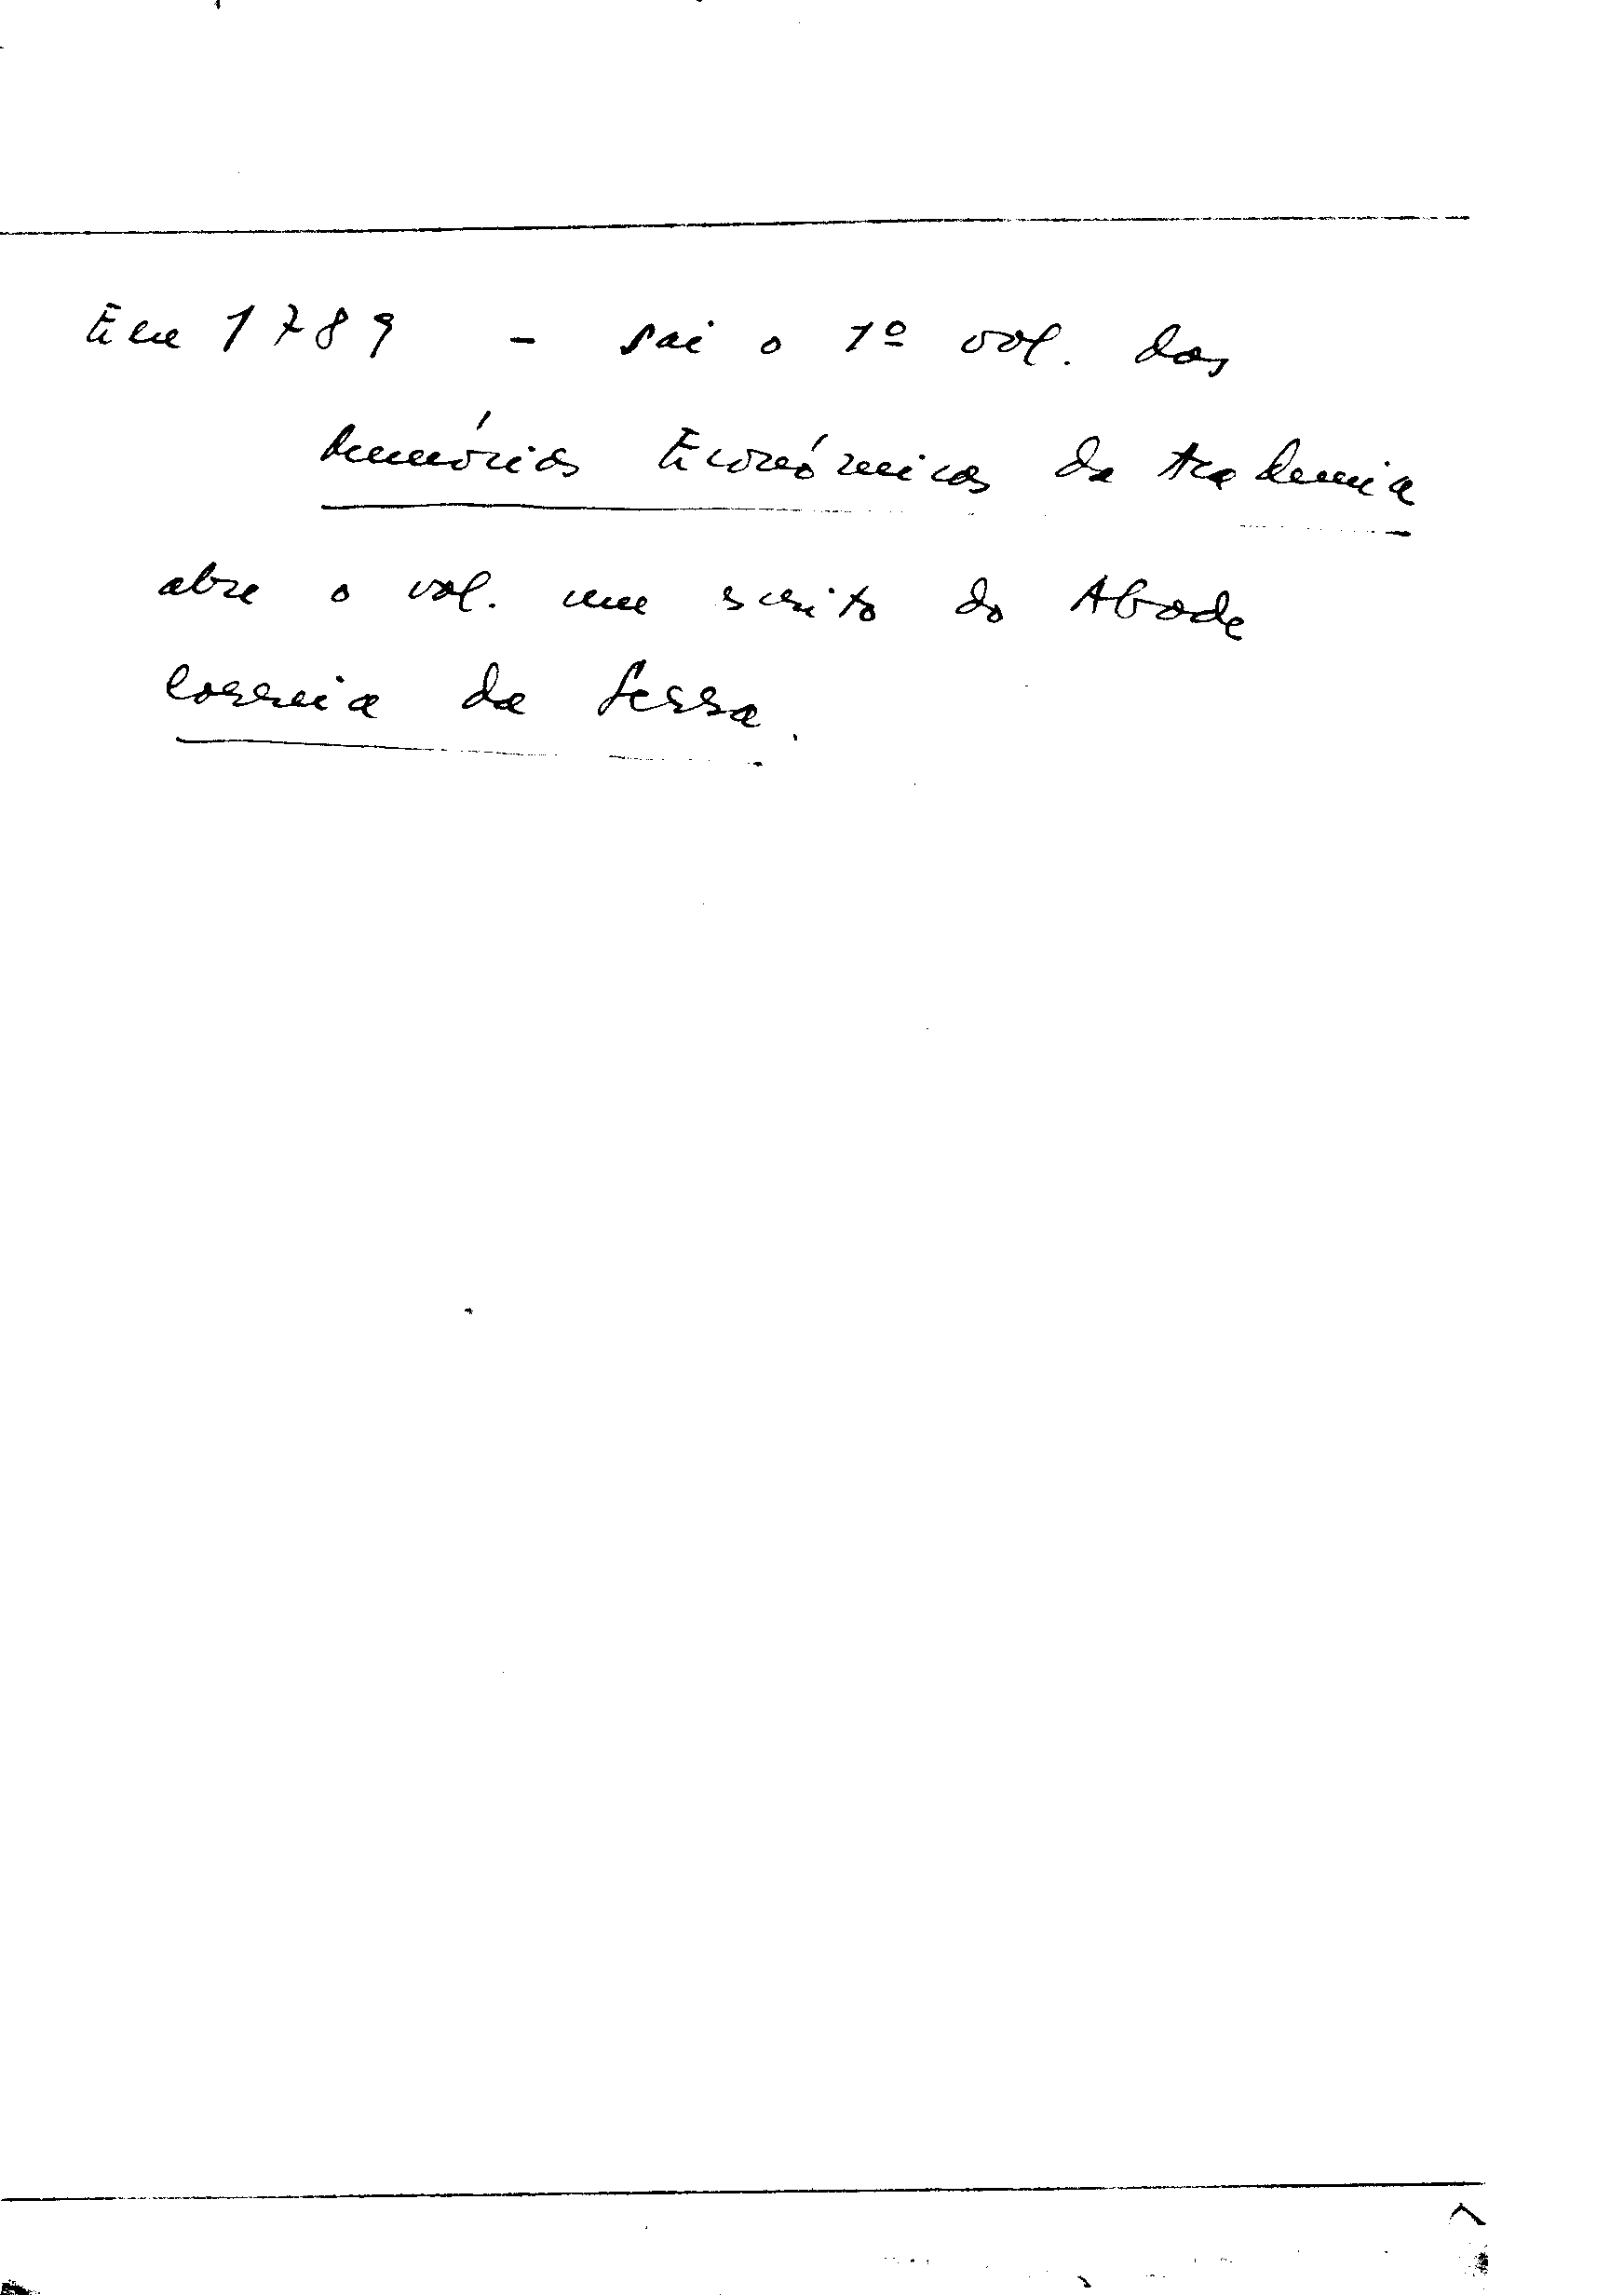 Em 1789 - sai o 1º vol. das
Memórias Económicas da Academia
abre o vol. um escrito do Abade
Correia da Serra.